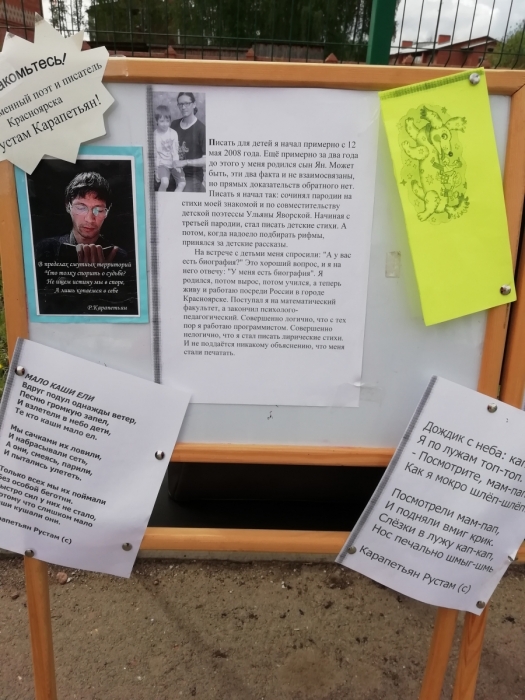 акомьтесь!
менный поэт и писатель
Красноярска
устам Карапетьян!
В пределах смутных территорий
Что толку спорить о судьбе?
Не ищем истину мы в споре,
А лишь копаемся в себе
Р.Карапетьян
Писать для детей я начал примерно с 12
мая 2008 года. Ещё примерно за два года
до этого у меня родился сын Ян. Может
быть, эти два факта и не взаимосвязаны,
но прямых доказательств обратного нет.
Писать я начал так: сочинял пародии на
стихи моей знакомой и по совместительству
детской поэтессы Ульяны Яворской. Начиная с
третьей пародии, стал писать детские стихи. А
потом, когда надоело подбирать рифмы,
принялся за детские рассказы.
На встрече с детьми меня спросили: "А у вас
есть биография?" Это хороший вопрос, и я на
него отвечу: "У меня есть биография". Я
родился, потом вырос, потом учился, а теперь
живу и работаю посреди России в городе
Красноярске. Поступал я на математический
факультет, а закончил психолого-
педагогический. Совершенно логично, что с тех
пор я работаю программистом. Совершенно
нелогично, что я стал писать лирические стихи.
И не поддаётся никакому объяснению, что меня
стали печатать.
МАЛО КАШИ ЕЛИ
Вдруг подул однажды ветер,
Песню громкую запел,
И взлетели в небо дети,
Те кто каши мало ел.
Мы сачками их ловили,
И набрасывали сеть,
А они, смеясь, парили,
И пытались улететь.
Только всех мы их поймали
Без особой беготни.
Быстро сил у них не стало,
отому что слишком мало
ши кушали они.
рапетьян Рустам (с)
Дождик с неба: кап
Я по лужам топ-топ.
- Посмотрите, мам-пап
Как я мокро шлёп-шлёп
Посмотрели мам-пап,
И подняли вмиг крик.
Слёзки в лужу кап-кап,
Нос печально шмыг-шмы
Карапетьян Рустам (с)